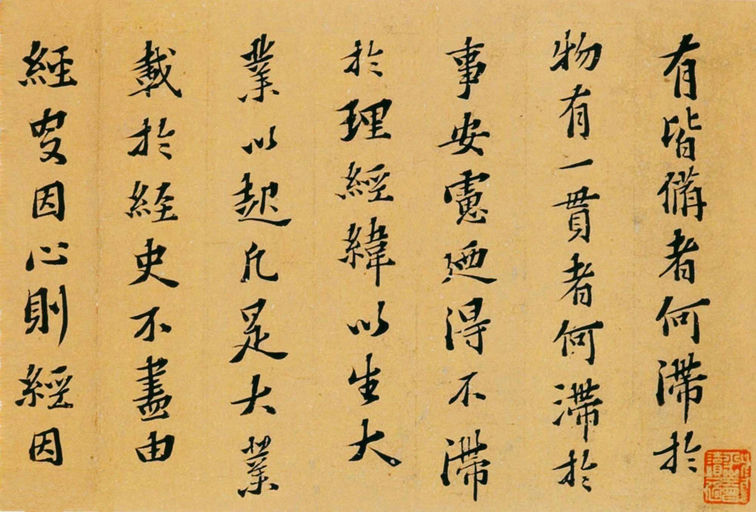 有皆備者何滯於
物有一貫者何滯於
事安慮迺得不滯
於理經緯以生大
業以起凡是大業
載於経史不盡由
經史因心則經因